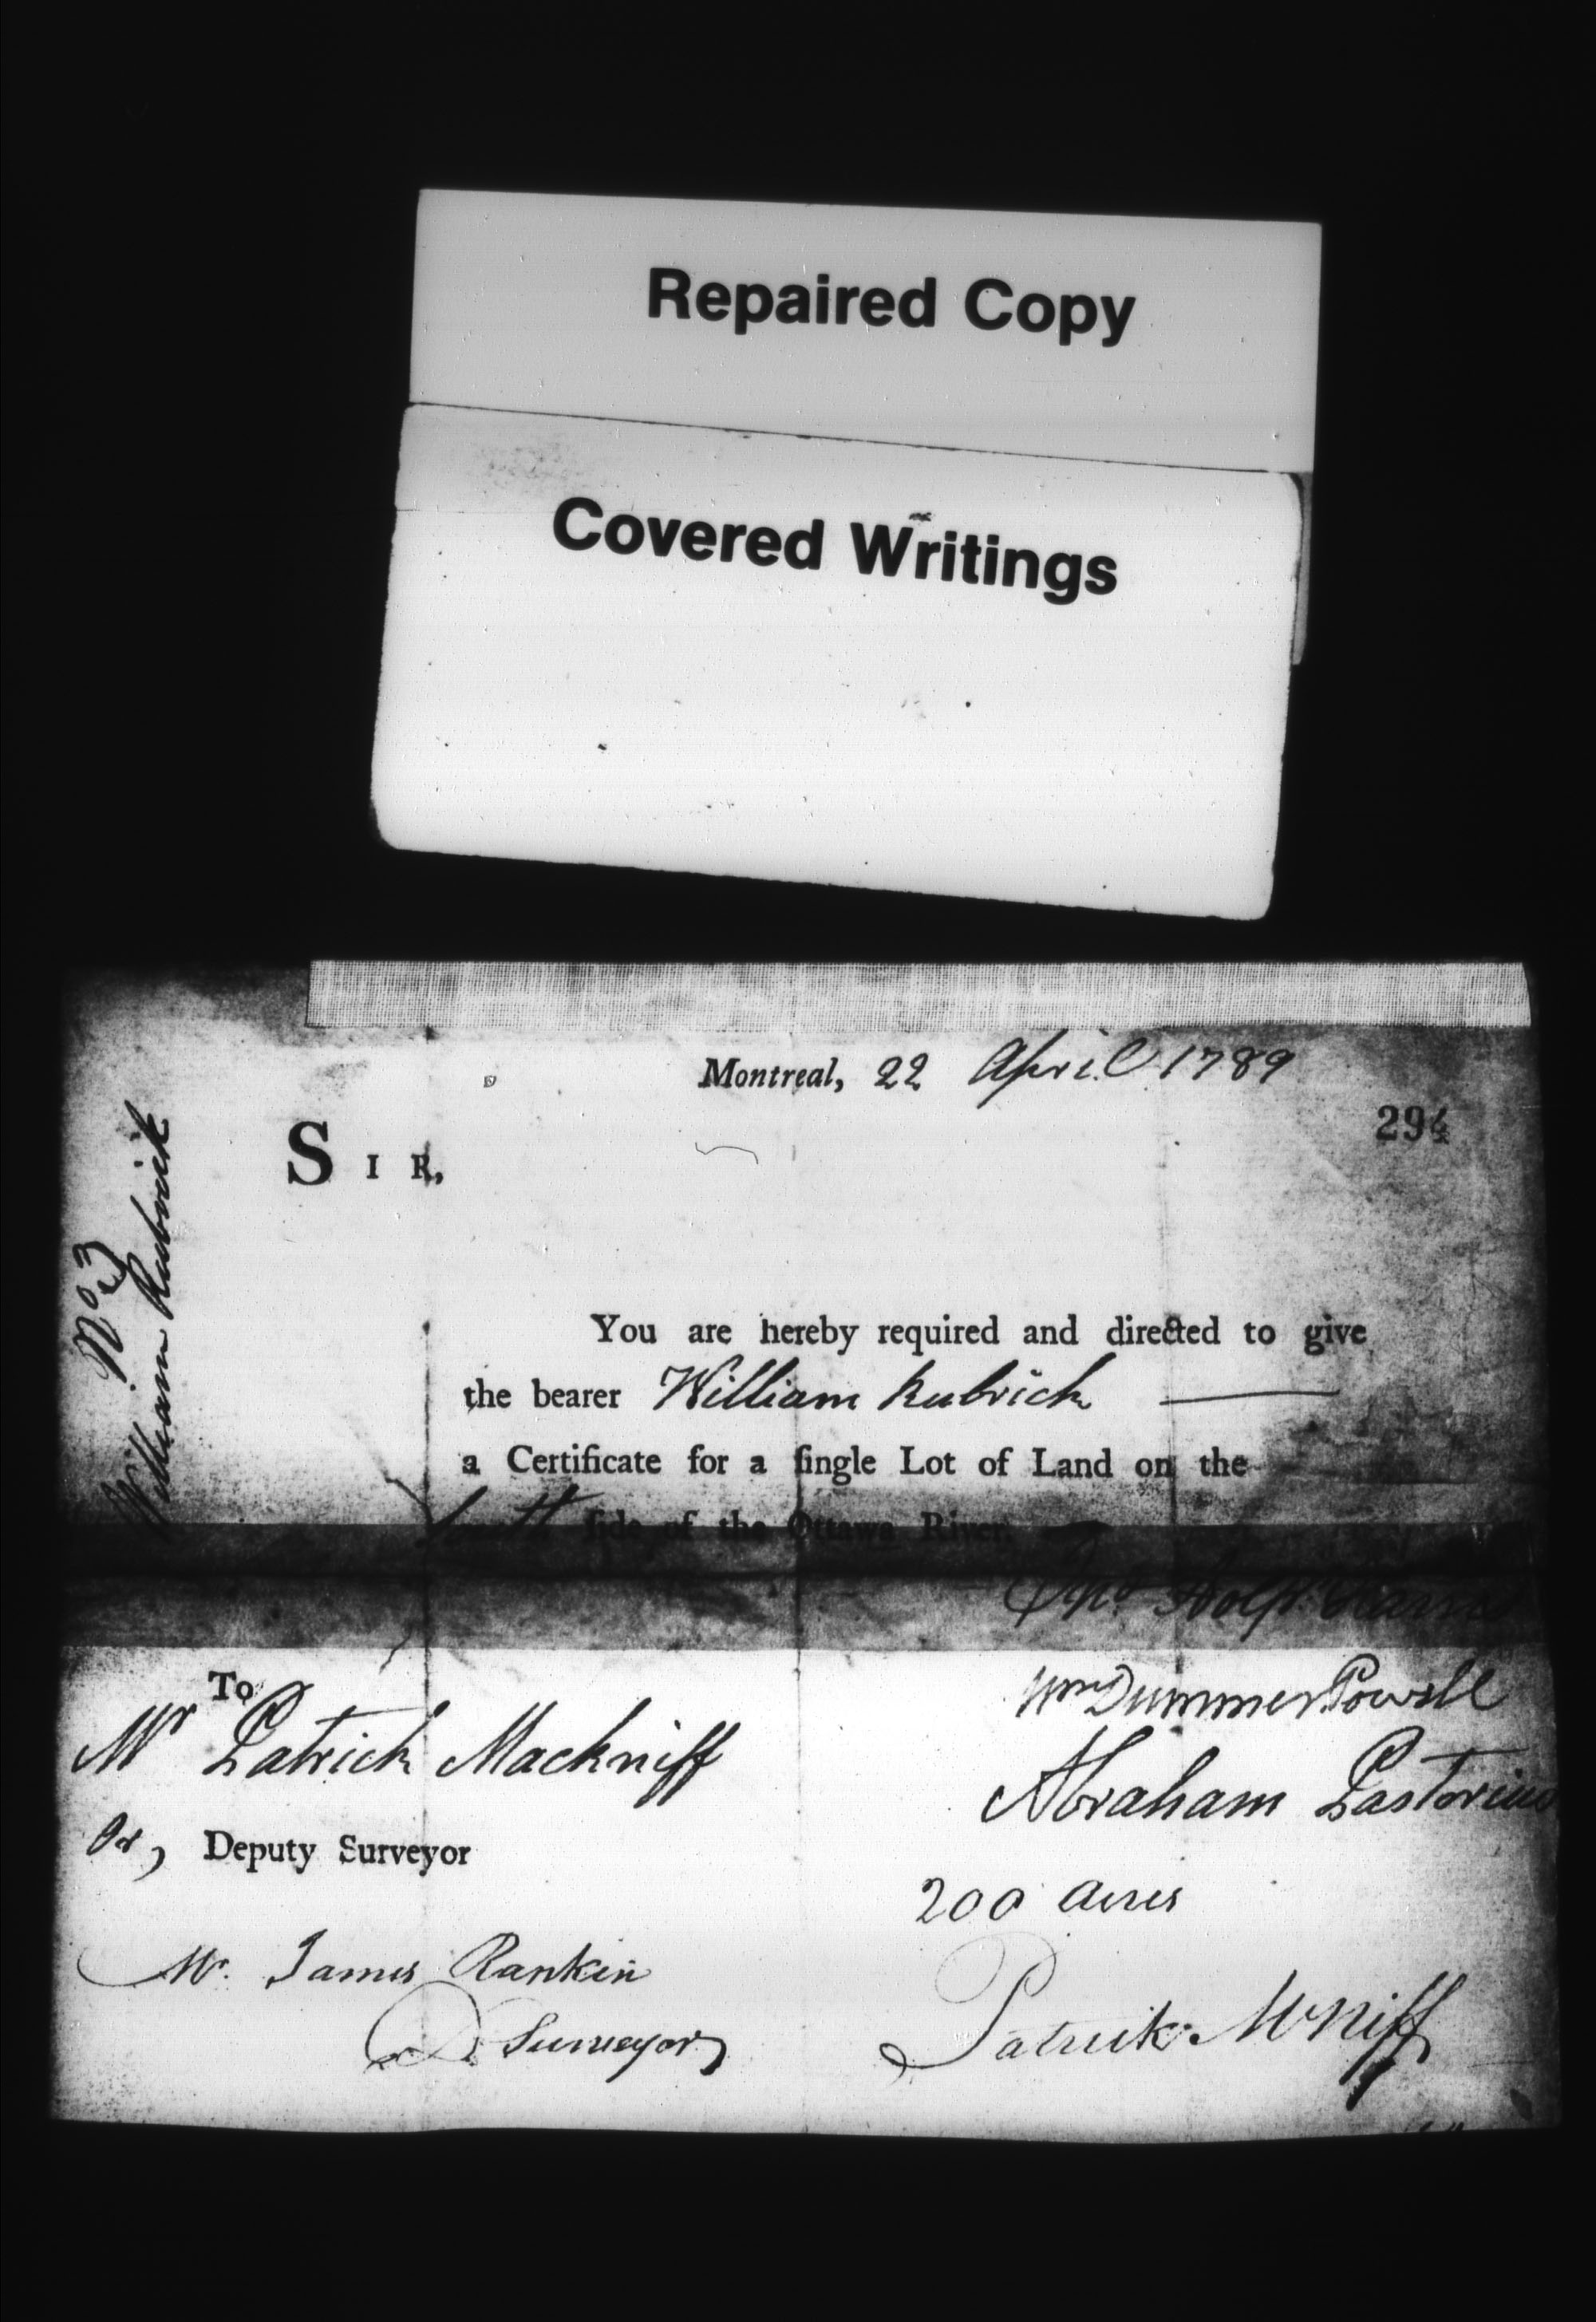 Repaired Copy
Covered Writings
Montreal, 22 April 1789
294
SIR,
No 3
William Rubrick
You are hereby required and directed to give
the bearer William Rubrick
a Certificate for a single Lot of Land on the
South side of the Ottawa River.
Jno
Wm Dummer Powell
Abraham Pastorius
To
Mr Patrick Mackniff
Or, Deputy Surveyor
200 acres
Mr. James Rankin
D. Surveyor
Patrick McNiff